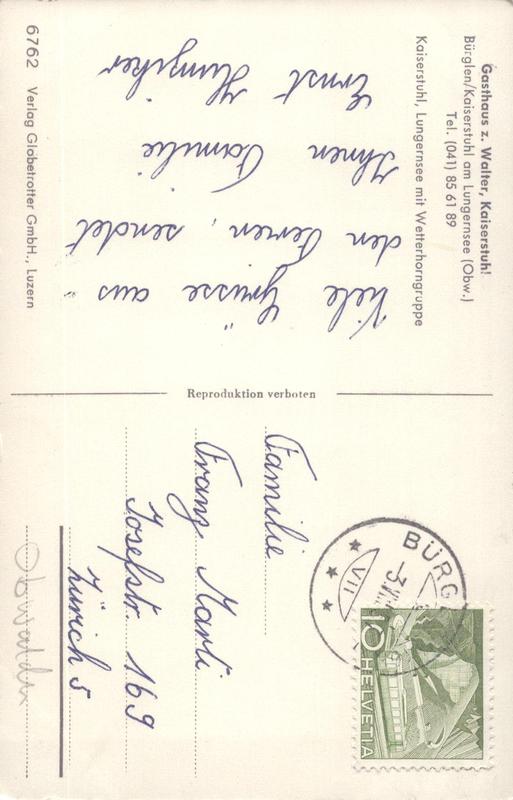 Gasthaus z. Walter, Kaiserstuhl
Bürglen/Kaiserstuhl am Lungernsee (Obw.)
Tel. (041) 85 61 89
Kaiserstuhl, Lungernsee mit Wetterhorngruppe
Viele Grüsse aus
den Ferien, sendet
Ihnen Familie
Ernst Hunziker
6762 Verlag Globetrotter GmbH., Luzern
Reproduktion verboten
BÜRGL
-3.VII
VII
10
HELVETIA
Familie
Franz Marti
Josefstr 169
Zürich 5
Obwalden